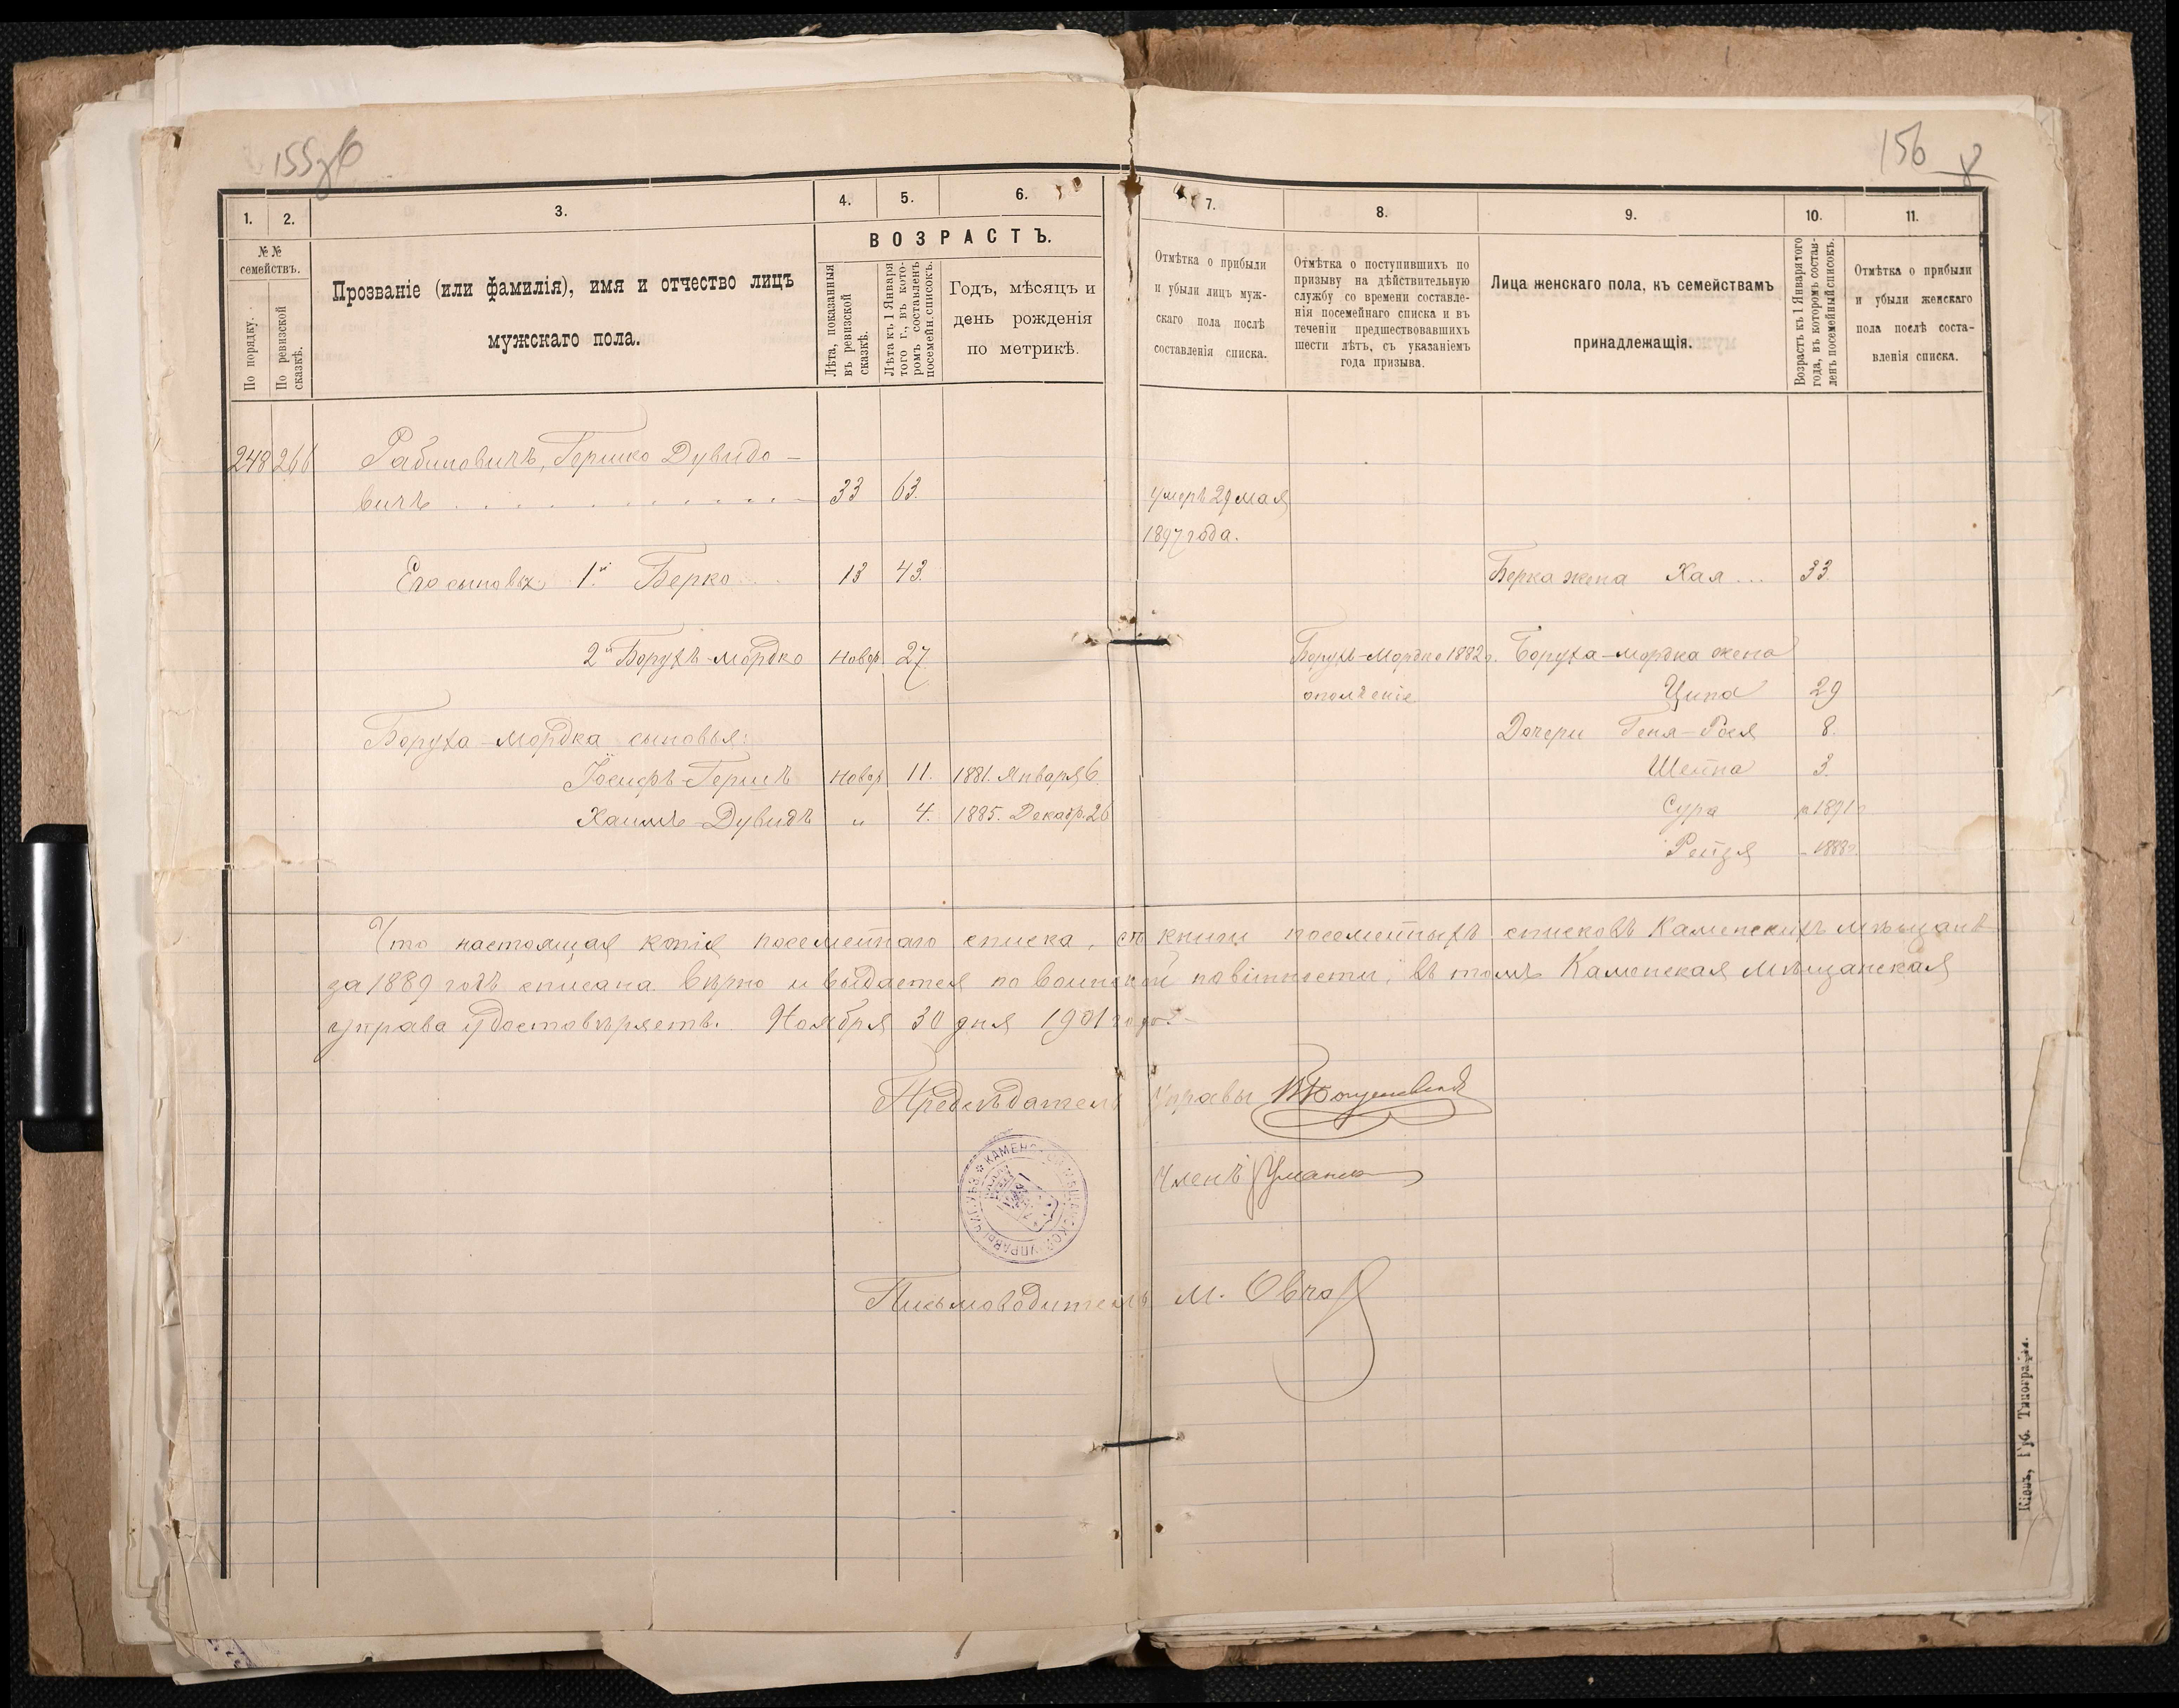 155об
156
1.
2.
3.
4.
5.
6.
7.
8.
9.
10.
11.
№№
семействъ.
По порядку.
По ревизской
сказкѣ.
Прозваніе (или фамилія), имя и отчество лицъ
мужскаго пола.
ВОЗРАСТЪ.
Лѣта, показанныя
въ ревизской
сказкѣ.
Лѣта къ 1 Января
того г., въ кото-
ромъ составленъ
посемейн. списокъ.
Годъ, мѣсяцъ и
день рожденія
по метрикѣ.
Отмѣтка о прибыли
и убыли лицъ муж-
скаго пола послѣ
составленія списка.
Отмѣтка о поступившихъ по
призыву на дѣйствительную
службу со времени составле-
нія посемейнаго списка и въ
теченіи предшествовавшихъ
шести лѣтъ, съ указаніемъ
года призыва.
Лица женскаго пола, къ семействамъ
принадлежащія.
Возрастъ къ 1 Января того
года, въ которомъ состав-
ленъ посемейный списокъ.
Отмѣтка о прибыли
и убыли женскаго
пола послѣ соста-
вленія списка.
248 266 Рабиновичъ, Гершко Дувидо-
вичъ 33 63. умеръ 29 мая
1897 года.
Его сыновья 1й Берко 13 43. Берка жена Хая ... 33.
2й Борухъ-Мордко Новор. 27 Борухъ-Мордко 1882 г. Боруха-Мордка жена
ополченіе Ципа 29
Боруха-Мордка сыновья: Дочери Геня-Рося 8.
Іосифъ-Гершъ Новор. 11. 1881. Января 6. Шейна 3.
Хаимъ-Дувидъ „ 4. 1885. Декабр. 26 Сура р. 1871 г.
Рейзя – 1888 г.
Что настоящая копія посемейнаго списка, съ книги посемейныхъ списковъ Каменскихъ мѣщанъ
за 1889 годъ списана вѣрно и выдается по воинской повинности, въ томъ Каменская Мѣщанская
управа удостовѣряетъ. Ноября 30 дня 1901 года.
Предсѣдатель Управы
КАМЕНСКОЙ МѢЩАНСКОЙ УПРАВЫ
Членъ Уманс
Письмоводитель М. Овча
Кіевъ, Губ. Типографія.